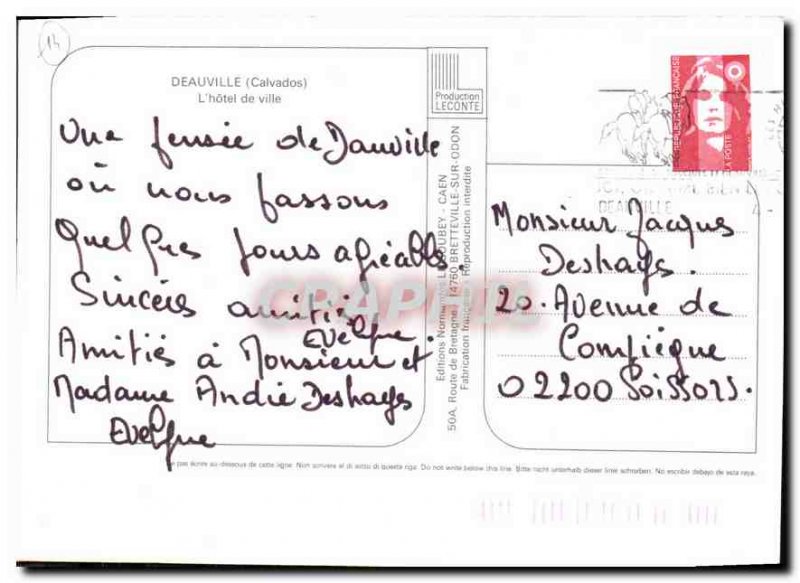 14
DEAUVILLE (Calvados)
L'hôtel de ville
Une pensée de Dauville
où nous passons
quelques jours agréables.
Sincères amitiés
Evelyne.
Amitiés à Monsieur et
Madame André Deshayes
Evelyne
Production
LECONTE
Editions Normandes LE GOUBEY - CAEN
50A, Route de Bretagne, 14760 BRETTEVILLE-SUR-ODON
Fabrication française - Reproduction interdite
REPUBLIQUE FRANÇAISE
LA POSTE
BIEN
DEAUVILLE
Monsieur Jacques
Deshayes.
20. Avenue de
Compiègne
02200 Soissons.
pas écrire au-dessous de cette ligne. Non scrivere al di sotto di questa riga. Do not write below this line. Bitte nicht unterhalb dieser linie schreiben. No escribir debajo de esta raya.